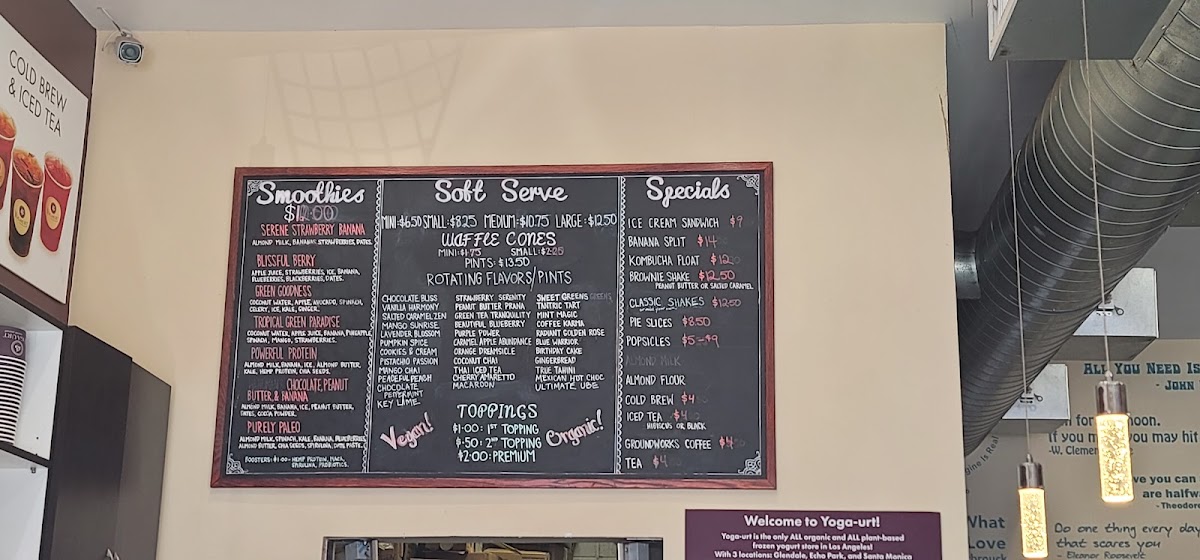 COLD BREW
& ICED TEA
Smoothies
$12.00
SERENE STRAWBERRY BANANA
ALMOND MILK, BANANAS, STRAWBERRIES, DATES.
BLISSFUL BERRY
APPLE JUICE, STRAWBERRIES, ICE, BANANA,
BLUEBERRIES, BLACKBERRIES, DATES.
GREEN GOODNESS
COCONUT WATER, APPLE, AVOCADO, SPINACH,
CELERY, ICE, KALE, GINGER.
TROPICAL GREEN PARADISE
COCONUT WATER, APPLE JUICE, BANANA, PINEAPPLE,
SPINACH, MANGO, STRAWBERRIES.
POWERFUL PROTEIN
ALMOND MILK, BANANA, ICE, ALMOND BUTTER,
KALE, HEMP PROTEIN, CHIA SEEDS.
CHOCOLATE, PEANUT
BUTTER, & BANANA
ALMOND MILK, BANANA, ICE, PEANUT BUTTER,
DATES, COCOA POWDER.
PURELY PALEO
ALMOND MILK, SPINACH, KALE, BANANA, BLUEBERRIES
ALMOND BUTTER, CHIA SEEDS, SPIRULINA, DATE PASTE.
BOOSTERS: $1.00 - HEMP PROTEIN, MACA,
SPIRULINA, PROBIOTICS.
Soft Serve
MINI: $6.50 SMALL: $8.25 MEDIUM: $10.75 LARGE: $12.50
WAFFLE CONES
MINI: $1.75 SMALL: $2.25
PINTS: $13.50
ROTATING FLAVORS/PINTS
CHOCOLATE BLISS
VANILLA HARMONY
SALTED CARAMEL ZEN
MANGO SUNRISE
LAVENDER BLOSSOM
PUMPKIN SPICE
COOKIES & CREAM
PISTACHIO PASSION
MANGO CHAI
PEACEFUL PEACH
CHOCOLATE
PEPPERMINT
KEY LIME
STRAWBERRY SERENITY
PEANUT BUTTER PRANA
GREEN TEA TRANQUILITY
BEAUTIFUL BLUEBERRY
PURPLE POWER
CARAMEL APPLE ABUNDANCE
ORANGE DREAMSICLE
COCONUT CHAI
THAI ICED TEA
CHERRY AMARETTO
MACAROON
SWEET GREENS
TANTRIC TART
MINT MAGIC
COFFEE KARMA
RADIANT GOLDEN ROSE
BLUE WARRIOR
BIRTHDAY CAKE
GINGERBREAD
TRUE TAHINI
MEXICAN HOT CHOC
ULTIMATE UBE
TOPPINGS
$1.00: 1ST TOPPING
$.50: 2ND TOPPING
$2.00: PREMIUM
Vegan!
Organic!
Specials
ICE CREAM SANDWICH $9
BANANA SPLIT $14
KOMBUCHA FLOAT $12
BROWNIE SHAKE $12.50
PEANUT BUTTER OR SALTED CARAMEL
CLASSIC SHAKES $12.50
PIE SLICES $8.50
POPSICLES $5-$9
ALMOND MILK
ALMOND FLOOR
COLD BREW $4
ICED TEA $4
HIBISCUS OR BLACK
GROUNDWORKS COFFEE $4
TEA $4
Welcome to Yoga-urt!
Yoga-urt is the only ALL organic and ALL plant-based
frozen yogurt store in Los Angeles!
With 3 locations: Glendale, Echo Park, and Santa Monica
ALL YOU NEED IS
- JOHN
for moon.
If you m you may hit
-W. Clemen
ve you can
are halfwa
- Theodore
What
Love
Do one thing every day
that scares you
- Eleanor Roosevelt